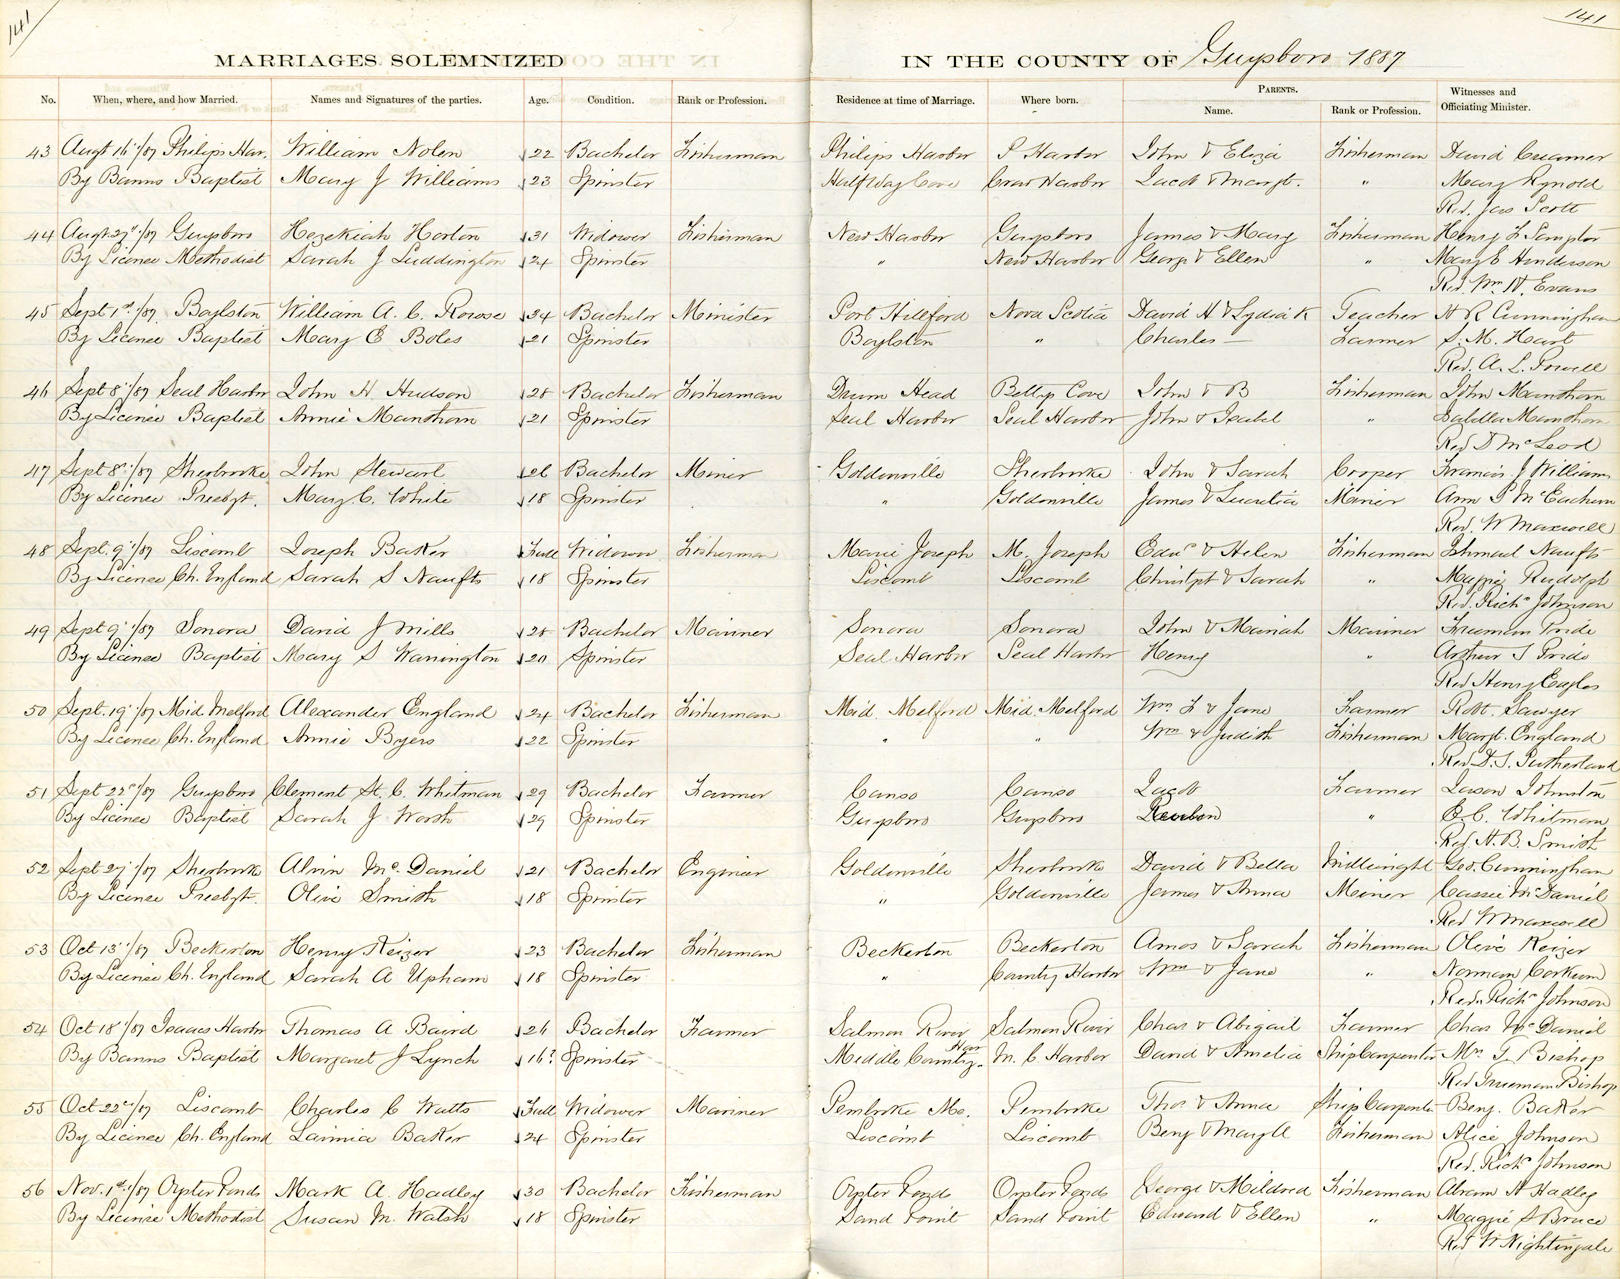 141
141
MARRIAGES SOLEMNIZED IN THE COUNTY OF Guysboro 1887
No. When, where, and how Married. Names and Signatures of the parties. Age. Condition. Rank or Profession. Residence at time of Marriage. Where born. PARENTS. Name. Rank or Profession. Witnesses and Officiating Minister.
43 Augt 16th /87 Philips Har. William Nolen 22 Bachelor Fisherman Philips Harbor P Harbor John & Eliza Fisherman David Creamer
By Banns Baptist Mary J Williams 23 Spinster Halfway Cove Crow Harbor Jacob & Margt. " Mary Rynold
Rev. Jas Scott
44 Augt 27th /87 Guysboro Hezekiah Horton 31 Widower Fisherman New Harbor Guysboro James & Mary Fisherman Henry
By Licence Methodist Sarah J Luddington 24 Spinster " New Harbor George & Ellen " Mary E Henderson
Rev. Wm H. Evans
45 Sept 1st /87 Boylston William A. C. Rowse 34 Bachelor Minister Port Hillford Nova Scotia David H & Lydia K Teacher H R Cunningham
By Licence Baptist Mary E Boles 21 Spinster Boylston " Charles — Farmer S. M. Hart
Rev. A. L. Powell
46 Sept 8th /87 Seal Harbor John H Hudson 28 Bachelor Fisherman Drum Head Bettys Cove John & B Fisherman John Manthorn
By Licence Baptist Annie Manthorn 21 Spinster Seal Harbor Seal Harbor John & Isabel " Isabella Manthorn
Rev D McLeod
47 Sept 8th /87 Sherbrooke John Stewart 26 Bachelor Miner Goldenville Sherbrooke John & Sarah Cooper Francis J Williams
By Licence Presbyt. Mary C. White 18 Spinster " Goldenville James & Lucretia Miner Ann S McEachern
Rev. W Maxwell
48 Sept. 9th /87 Liscomb Joseph Baker Full Widower Fisherman Marie Joseph M. Joseph Edwd & Helen Fisherman Ishmael Naufts
By Licence Ch. England Sarah S Naufts 18 Spinster Liscomb Liscomb Christpr & Sarah " Maggie Rudolph
Rev. Richd Johnson
49 Sept 9th /87 Sonora David J Mills 28 Bachelor Mariner Sonora Sonora John & Mariah Mariner Freeman Pride
By Licence Baptist Mary S Warrington 20 Spinster Seal Harbor Seal Harbor Henry " Arthur T Pride
Rev Henry Eagles
50 Sept. 19th /87 Mid. Melford Alexander England 24 Bachelor Fisherman Mid. Melford Mid. Melford Wm F & Jane Farmer Robt. Sawyer
By Licence Ch. England Annie Byers 22 Spinster " " Wm & Judith Fisherman Margt. England
Rev. D. S. Sutherland
51 Sept 22nd /87 Guysboro Clement St. C. Whitman 29 Bachelor Farmer Canso Canso Jacob Farmer Johnston
By Licence Baptist Sarah J Worth 29 Spinster Guysboro Guysboro Reuben " E. C. Whitman
Rev. H. B. Smith
52 Sept 27th /87 Sherbrooke Alvin McDaniel 21 Bachelor Engineer Goldenville Sherbrooke David & Bella Millwright Geo. Cunningham
By Licence Presbyt. Olive Smith 18 Spinster " Goldenville James & Anna Miner Cassie McDaniel
Rev W Maxwell
53 Oct 13th /87 Beckerton Henry Keizer 23 Bachelor Fisherman Beckerton Beckerton Amos & Sarah Fisherman Olive Keizer
By Licence Ch. England Sarah A Upham 18 Spinster " Country Harbor Wm & Jane " Norman Corkum
Rev. Richd Johnson
54 Oct 18th /87 Isaacs Harbor Thomas A Baird 26 Bachelor Farmer Salmon River Salmon River Chas & Abigail Farmer Chas McDaniel
By Banns Baptist Margaret J Lynch 16? Spinster Middle Country Har. M. C Harbor David & Amelia Ship Carpenter Mrs T Bishop
Rev. Trueman Bishop
55 Oct 22nd /87 Liscomb Charles C Watts Full Widower Mariner Pembroke Me. Pembroke Thos & Anna Ship Carpenter Benj. Baker
By Licence Ch. England Lavinia Baker 24 Spinster Liscomb Liscomb Benj & Mary A Fisherman Alice Johnson
Rev. Richd Johnson
56 Nov. 1st /87 Oyster Ponds Mark A. Hadley 30 Bachelor Fisherman Oyster Ponds Oyster Ponds George & Mildred Fisherman Abram N Hadley
By Licence Methodist Susan M. Walsh 18 Spinster Sand Point Sand Point Edward & Ellen " Maggie S Bruce
Rev W Nightingale